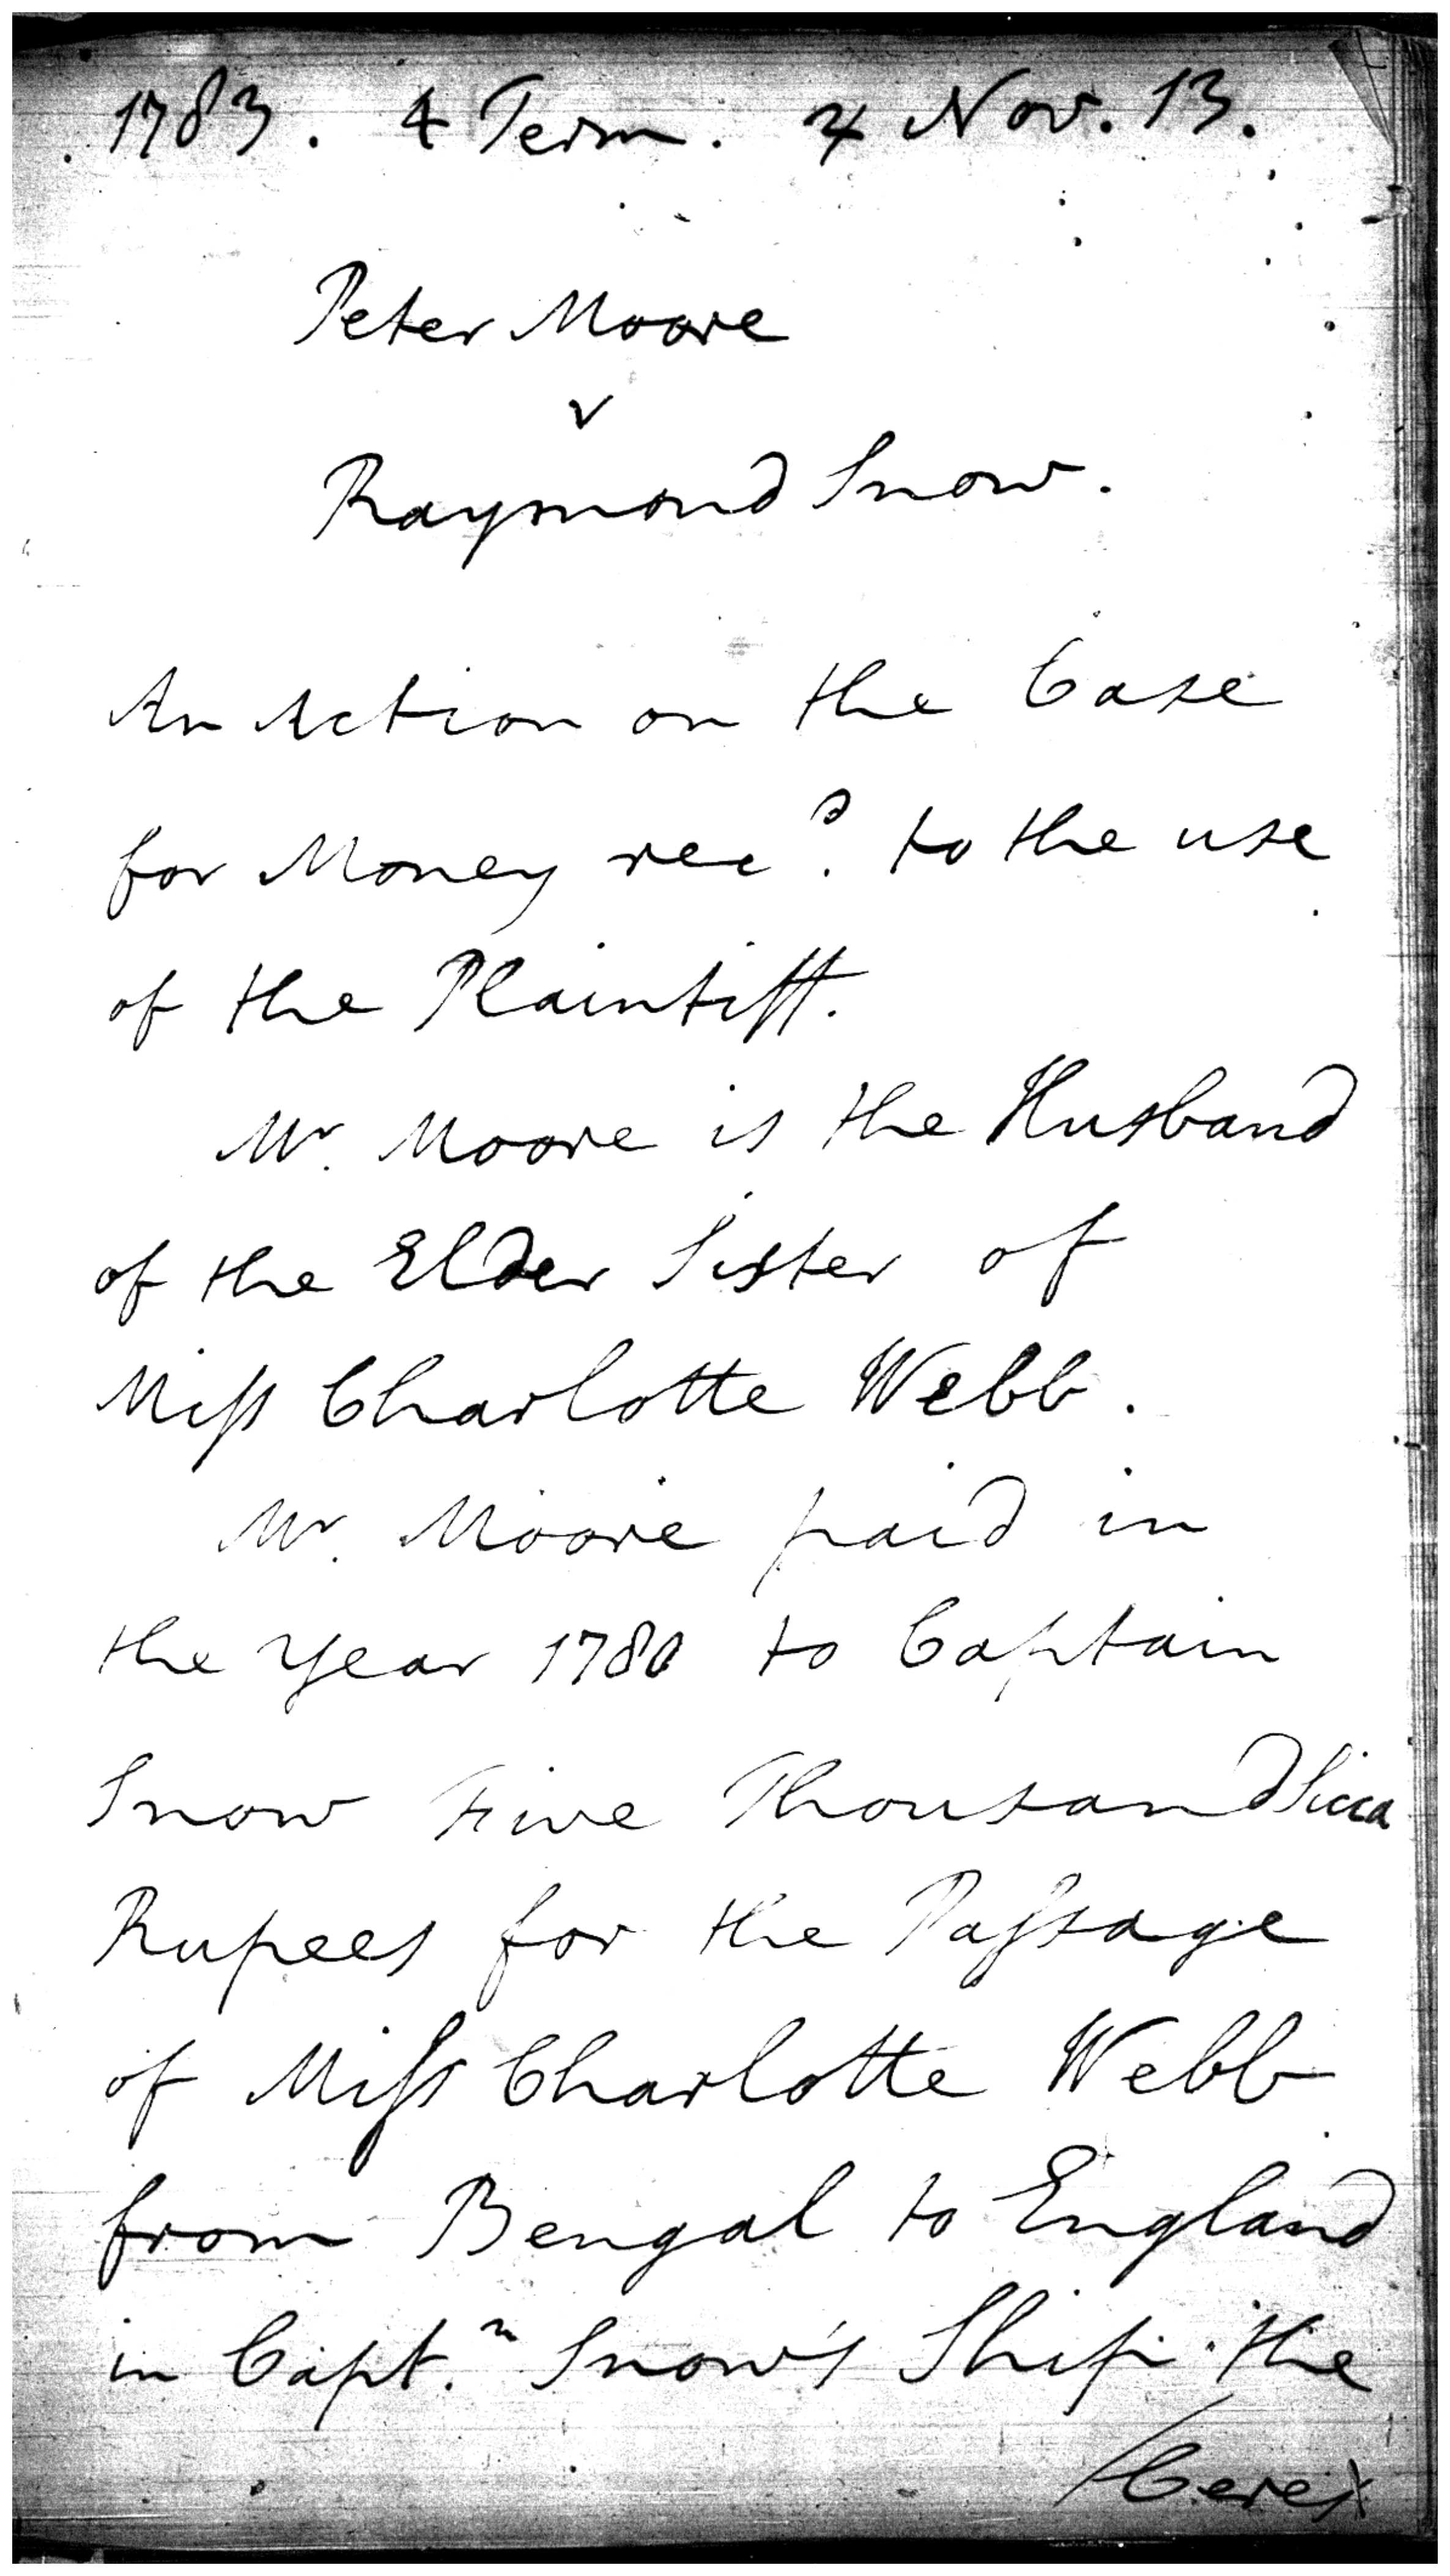 1783. 4 Term. ♃ Nov. 13.
Peter Moore
v
Raymond Snow.
An Action on the Case
for Money rec.d to the use
of the Plaintiff.
Mr. Moore is the Husband
of the Elder Sister of
Miſs Charlotte Webb.
Mr. Moore paid in
the Year 1780 to Captain
Snow Five Thousand Sicca
Rupees for the Paſsage
of Miſs Charlotte Webb
from Bengal to England
in Capt.n Snow's Ship the
/Ceres